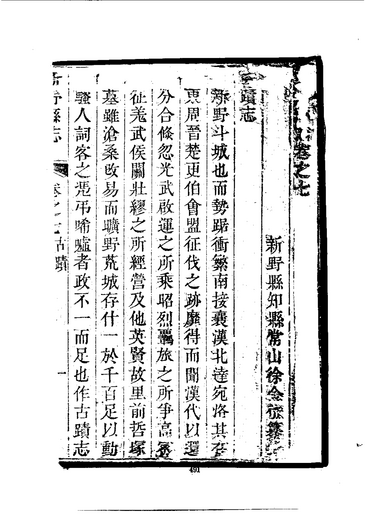 卷之七
新野縣知縣常山徐金位纂
蹟志
新野斗城也而勢踞衝繁南接襄漢北達宛洛其在
東周晉楚更伯會盟征伐之跡靡得而聞漢代以還
分合倏忽光武啟運之所乘昭烈羈旅之所爭高密
征羗武侯關壯繆之所經營及他英賢故里前哲塚
墓雖滄桑改易而曠野荒城存什一於千百足以動
騷人詞客之憑弔唏噓者政不一而足也作古蹟志
新野縣志
卷之七古蹟
一
491